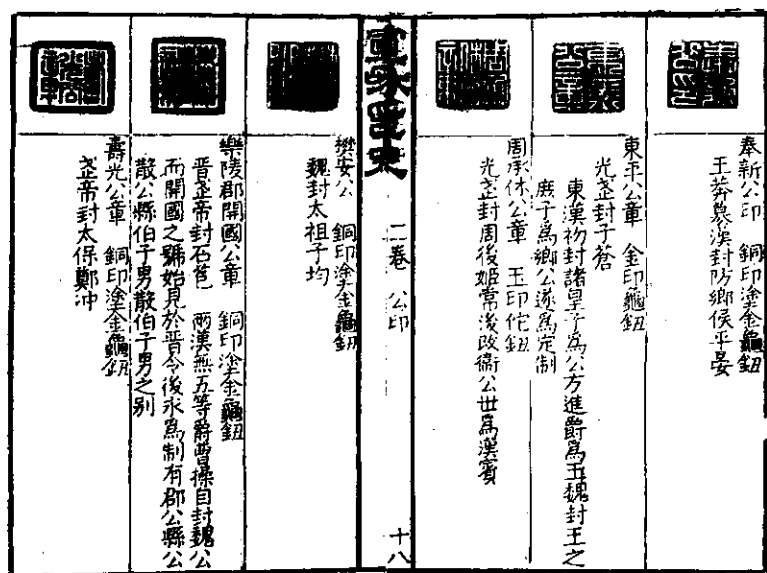 奉新公印　銅印塗金龜鈕
王莽篡漢封防鄉侯平晏
東平公章　金印龜鈕
光武封子蒼
東漢初封諸皇子為公方進爵為王魏封王之
庶子為鄉公遂為定制
周承休公章　玉印佗鈕
光武封周後姬常後改衛公世為漢賓
二卷　公印
十八
樊安公　銅印塗金龜鈕
魏封太祖子均
樂陵郡開國公章　銅印塗金龜鈕
晉武帝封石苞　兩漢無五等爵曹操自封魏公
而開國之號始見於晉令後永為制有郡公縣公
散公縣伯子男散伯子男之別
壽光公章　銅印塗金龜鈕
武帝封太保鄭沖